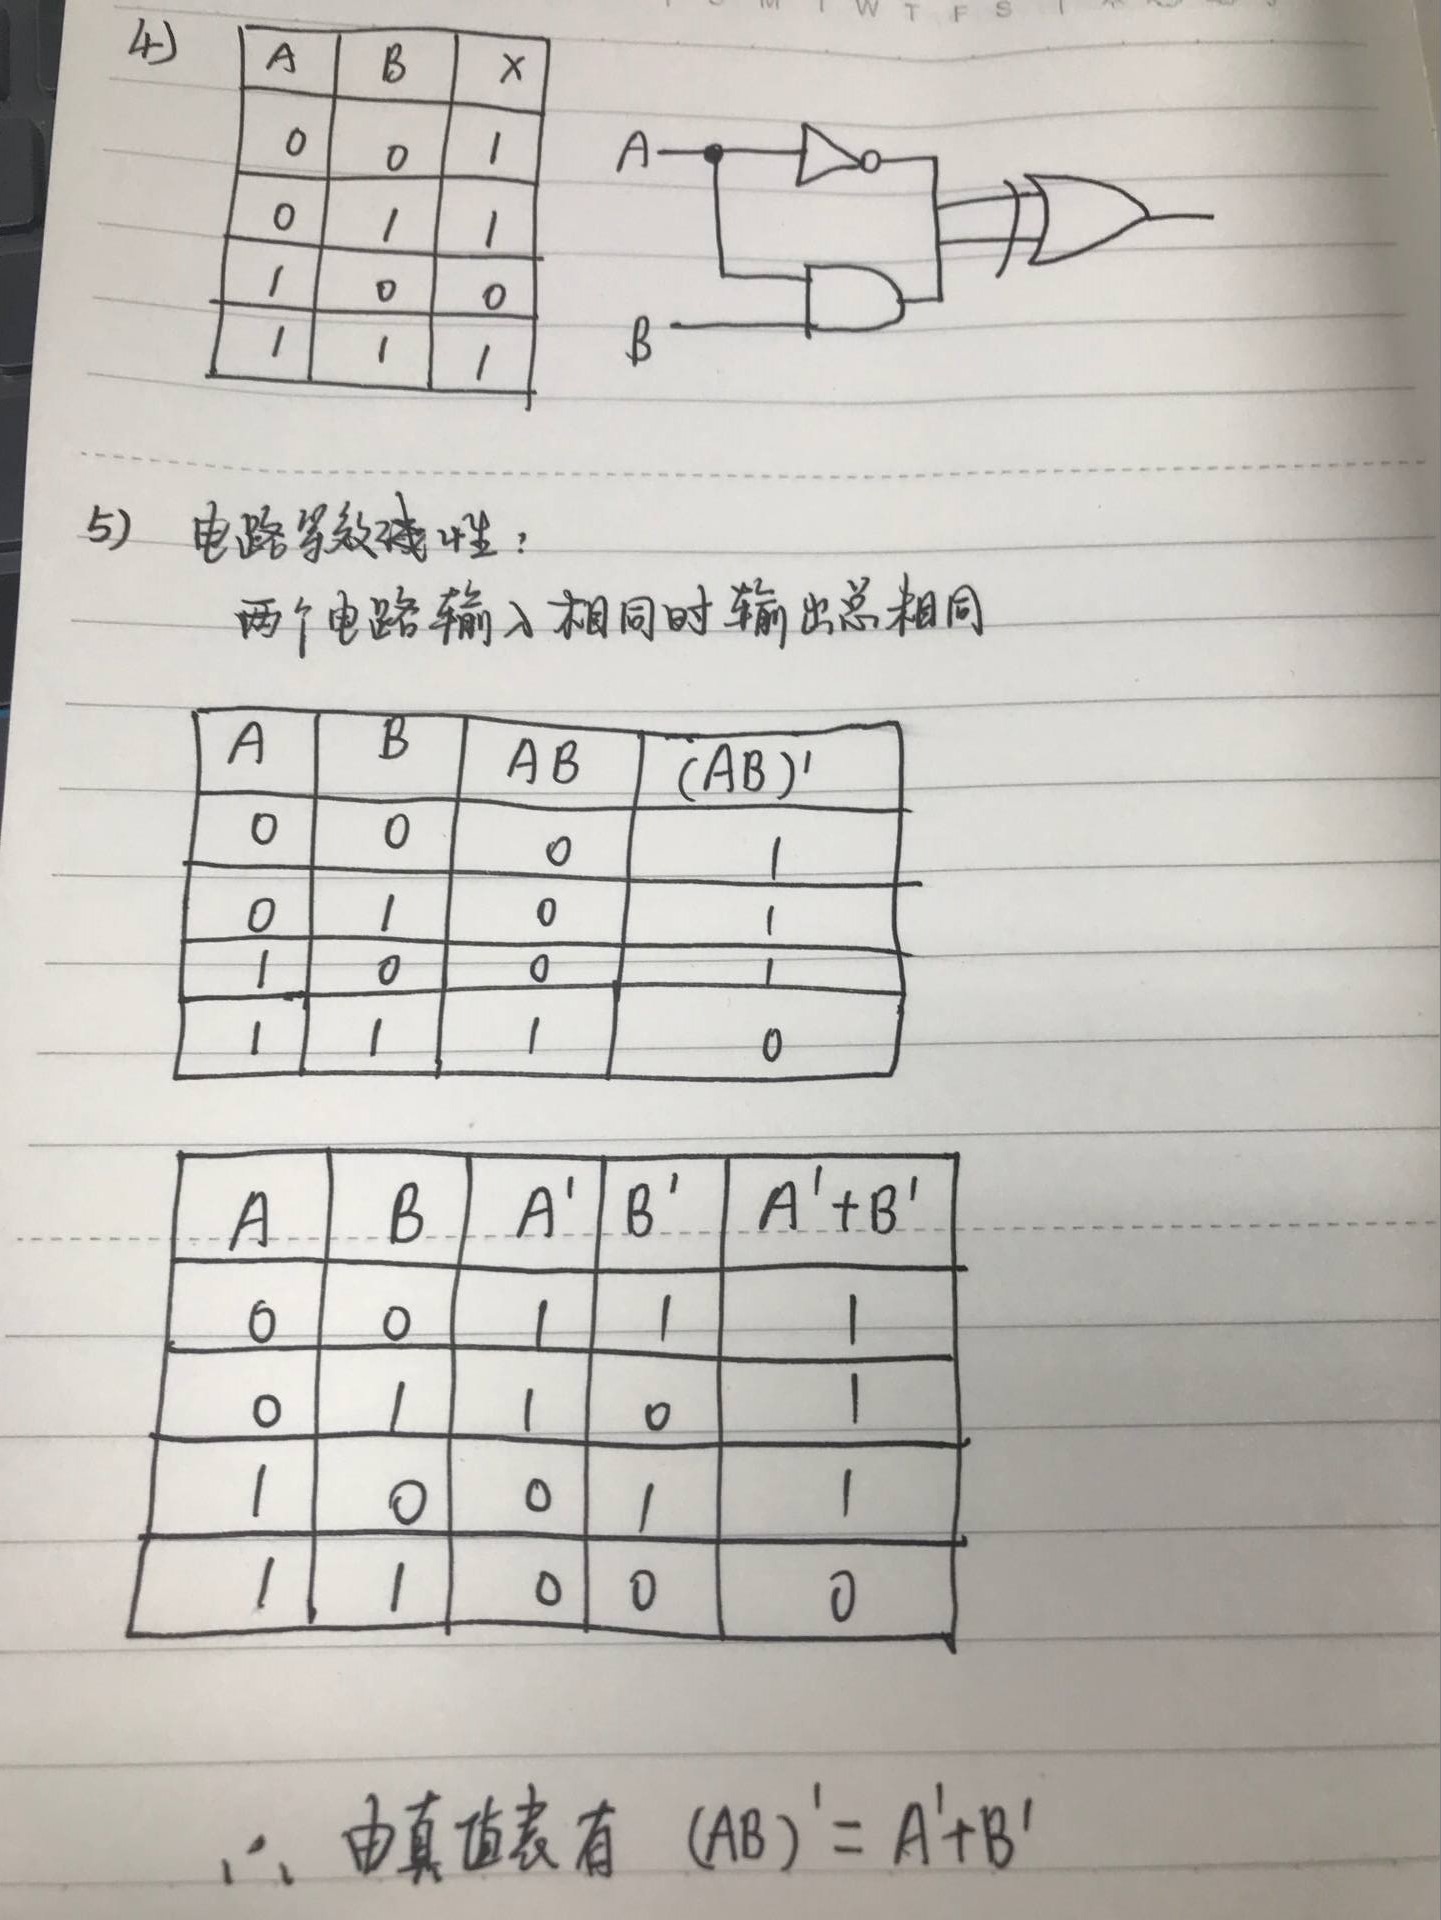 M T W T F S
4)
A B X
0 0 1
0 1 1
1 0 0
1 1 1
A
B
5) 电路等效性:
两个电路输入相同时输出总相同
A B AB (AB)'
0 0 0 1
0 1 0 1
1 0 0 1
1 1 1 0
A B A' B' A'+B'
0 0 1 1 1
0 1 1 0 1
1 0 0 1 1
1 1 0 0 0
∴ 由真值表有 (AB)'= A'+B'